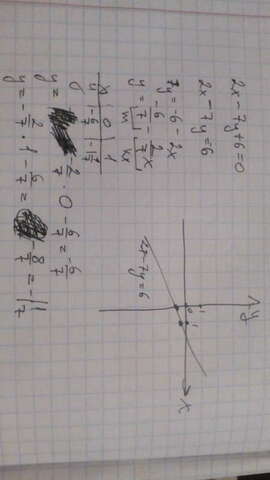 2x - 7y + 6 = 0
2x - 7y = 6
7y = -6 - 2x
y = [-6/7] - [2/7 x]
m kx
x | 0 | 1
y | -6/7 | -1 1/7
y = -2/7 · 0 - 6/7 = -6/7
y = -2/7 · 1 - 6/7 = -8/7 = -1 1/7
y
1
0 1
x
2x - 7y = 6